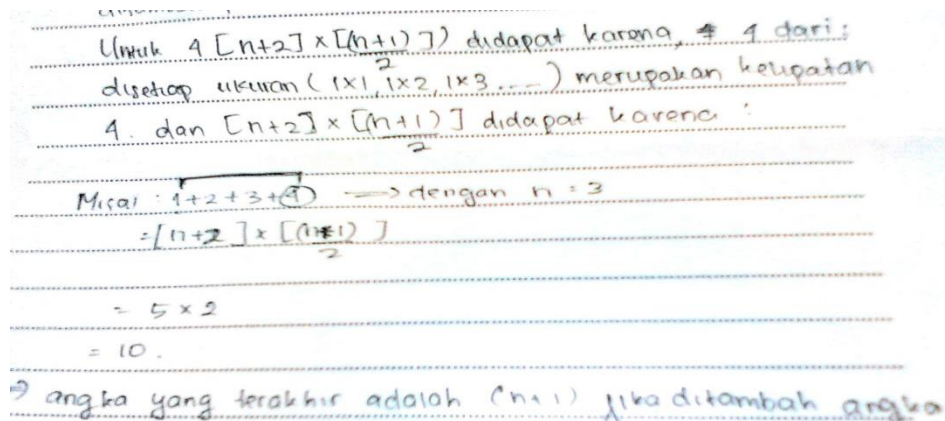 Untuk 4 [n+2] × [(n+1)/2]) didapat karena, 4 dari :
disetiap ukuran (1×1, 1×2, 1×3 ....) merupakan kelipatan
4. dan [n+2] × [(n+1)/2] didapat karena :
Misal : 1+2+3+4 → dengan n = 3
= [n+2] × [(n+1)/2]
= 5 × 2
= 10.
⇒ angka yang terakhir adalah (n+1) jika ditambah angka